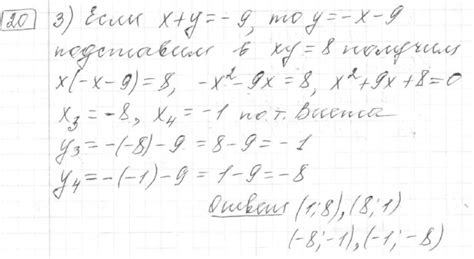 20 3) Если x+y=-9, то y=-x-9
подставим в xy=8 получим
x(-x-9)=8, -x²-9x=8, x²+9x+8=0
x₃=-8, x₄=-1 по т. Виета
y₃=-(-8)-9=8-9=-1
y₄=-(-1)-9=1-9=-8
Ответ (1;8), (8;1)
(-8;-1), (-1;-8)